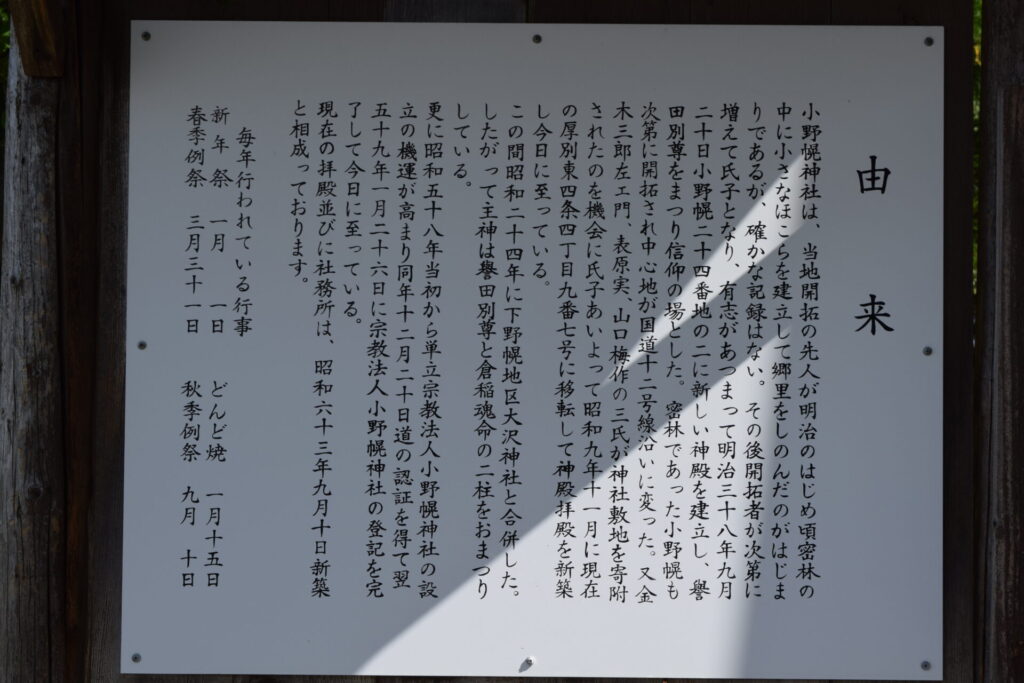 由来
小野幌神社は、当地開拓の先人が明治のはじめ頃密林の
中に小さなほこらを建立して郷里をしのんだのがはじま
りであるが、確かな記録はない。その後開拓者が次第に
増えて氏子となり、有志があつまって明治三十八年九月
二十日小野幌二十四番地の二に新しい神殿を建立し、誉
田別尊をまつり信仰の場とした。密林であった小野幌も
次第に開拓され中心地が国道十二号線沿いに変った。又金
木三郎左エ門 表原実、山口梅作の三氏が神社敷地を寄附
されたのを機会に氏子あいよって昭和九年十一月に現在
の厚別東四条四丁目九番七号に移転して神殿拝殿を新築
し今日に至っている。
この間昭和二十四年に下野幌地区大沢神社と合併した。
したがって主神は誉田別尊と倉稲魂命の二柱をおまつり
している。
更に昭和五十八年当初から単立宗教法人小野幌神社の設
立の機運が高まり同年十二月二十日道の認証を得て翌
五十九年一月二十六日に宗教法人小野幌神社の登記を完
了して今日に至っている。
現在の拝殿並びに社務所は、昭和六十三年九月十日新築
と相成っております。
毎年行われている行事
新年祭 一月 一日 どんど焼 一月十五日
春季例祭 三月三十一日 秋季例祭 九月 十日